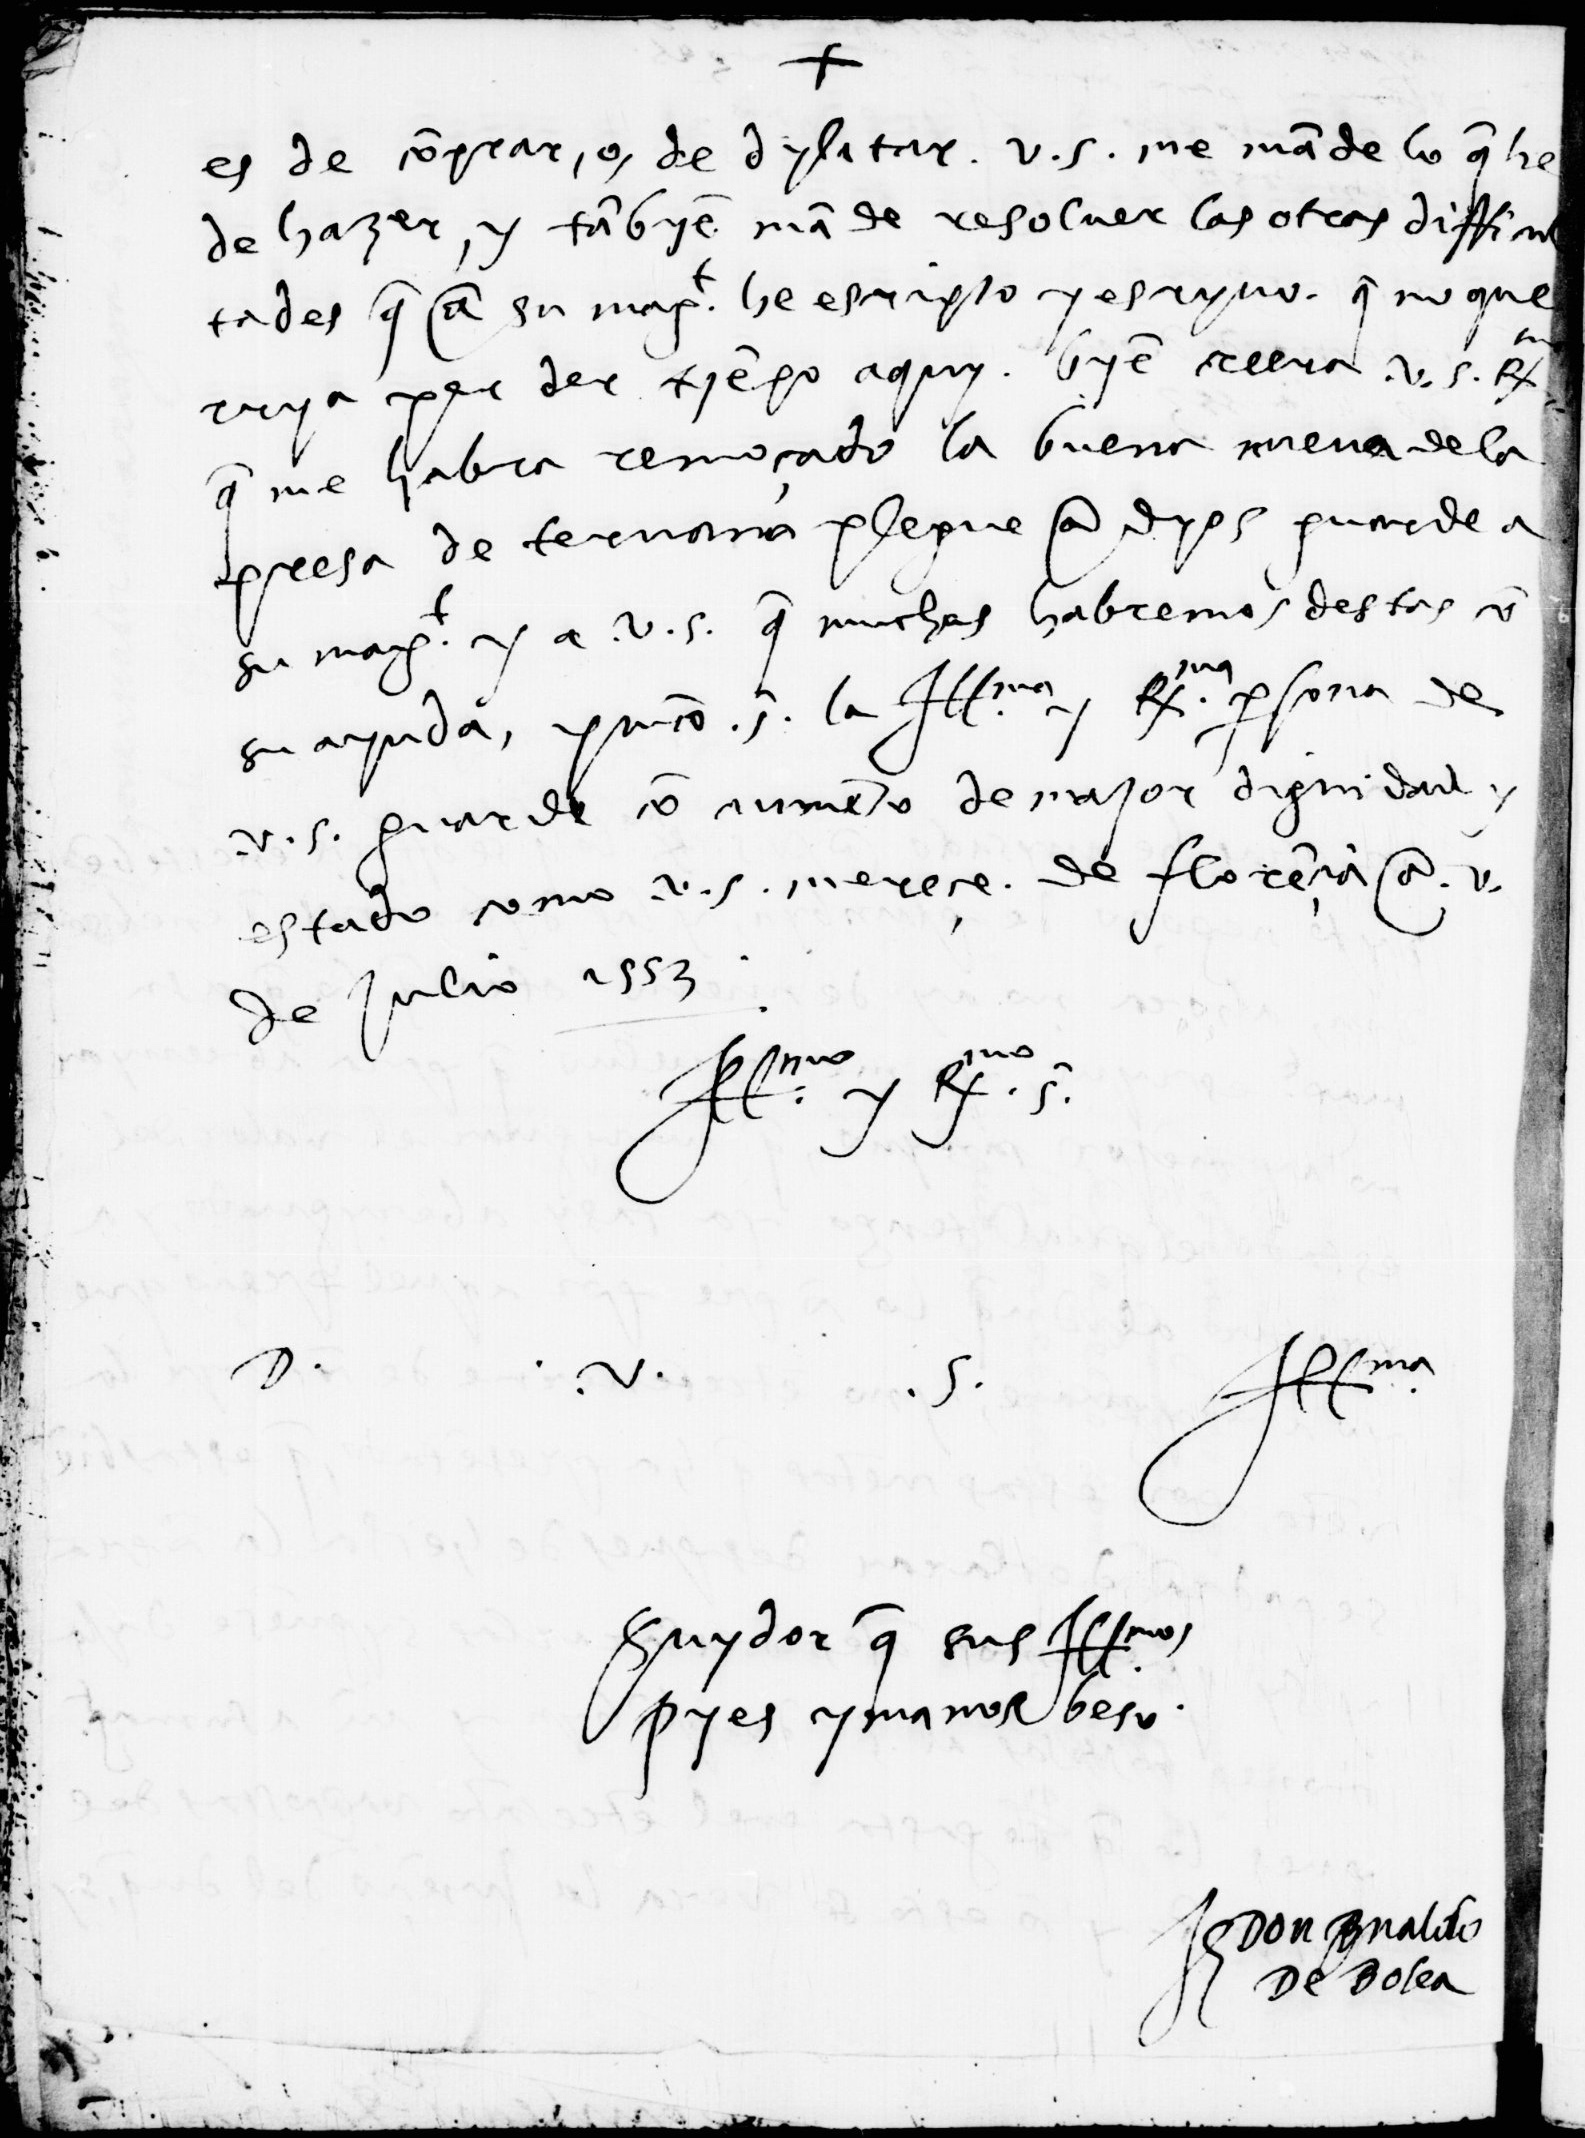 +
es de cõprar, o, de dylatar. v. s. me mãde lo q̃ he
de hazer, y tãbyẽ mãde resoluer las otras difficul
tades q̃ a su magt. he escripto y escryuo. q̃ no que
rrya perder tyẽpo aquy. byẽ creera .v. s. Rma
q̃ me habra remoçado la buena nueua de la
presa de teruana plegue a dyos guarde a
su magt. y a .v.s. q̃ muchas habremos destas cõ
su ayuda, y nr̃o .s̃. la Illma. y Rma. persona de
.v.s. guarde cõ aumẽto de mayor dignidad y
estado como .v.s. mereçe. de florẽçia a .v.
de Julio 1553.
Illmo. y Rmo. s̃.
D. .V. .S. Illma.
Suydor q̃ sus Illmos
pyes y manos beso.
Don
De Bolea